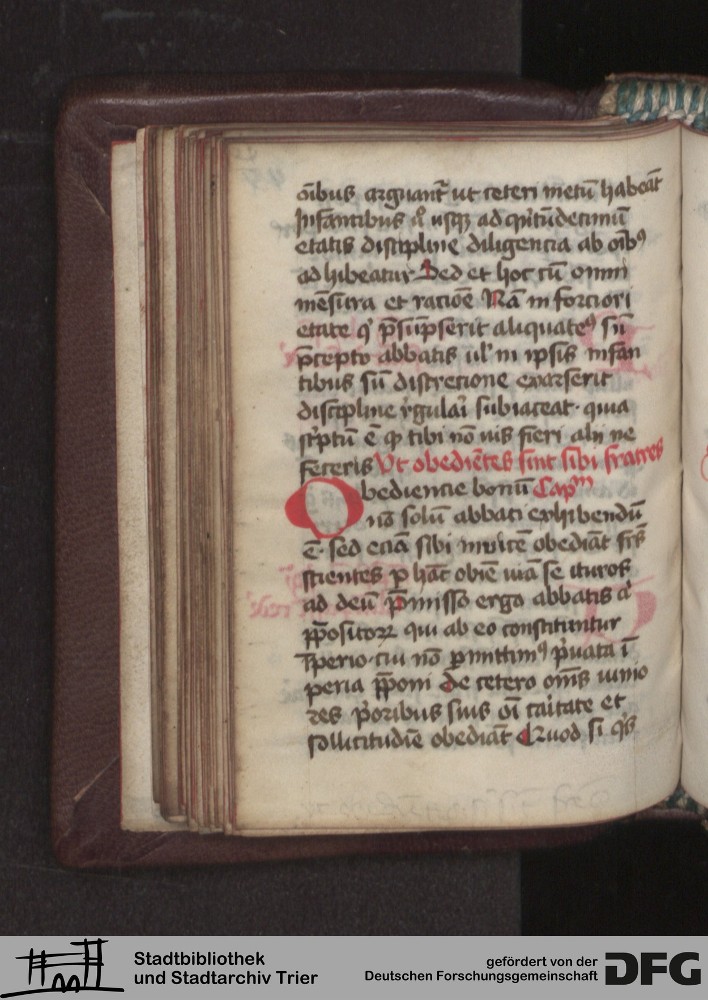 oībus arguant᷑ ut ceteri metū habeāt
Infantibus ů usqꝫ ad qͥntūdecimū
etatis discipline diligencia ab oībꝰ
adhibeatur Sed et hoc cū omni
mēsura et racōe Nā in forciori
etate qͥ p̄sūpserit aliquatenꝰ sū
p̄cepto abbatis ul' in ipsis infan
tibus sū discrecione exarserit
discipline rͤgulaī subiaceat · quia
scͥptū ē ꝙ tibi nō uis fieri alij ne
feceris Ut obediētes sint sibi fratres
Obediencie bonū Capᵐ
nō solū abbati exhibendū
ē · sed eciā sibi inuicē obediāt frēs
scientes ꝑ hāc obīe uiā se ituros
ad deū p̄misso ergo abbatis aͭ
p̄positoꝝ qui ab eo constituntur
īperio · cui nō ꝑmittimꝰ pͥuata ī
peria p̄poni De cetero om̄s iunio
res pͥoribus suis oī caͥtate et
sollicitudīe obediāt Quod si qͥs
Stadtbibliothek
und Stadtarchiv Trier
gefördert von der
Deutschen Forschungsgemeinschaft
DFG